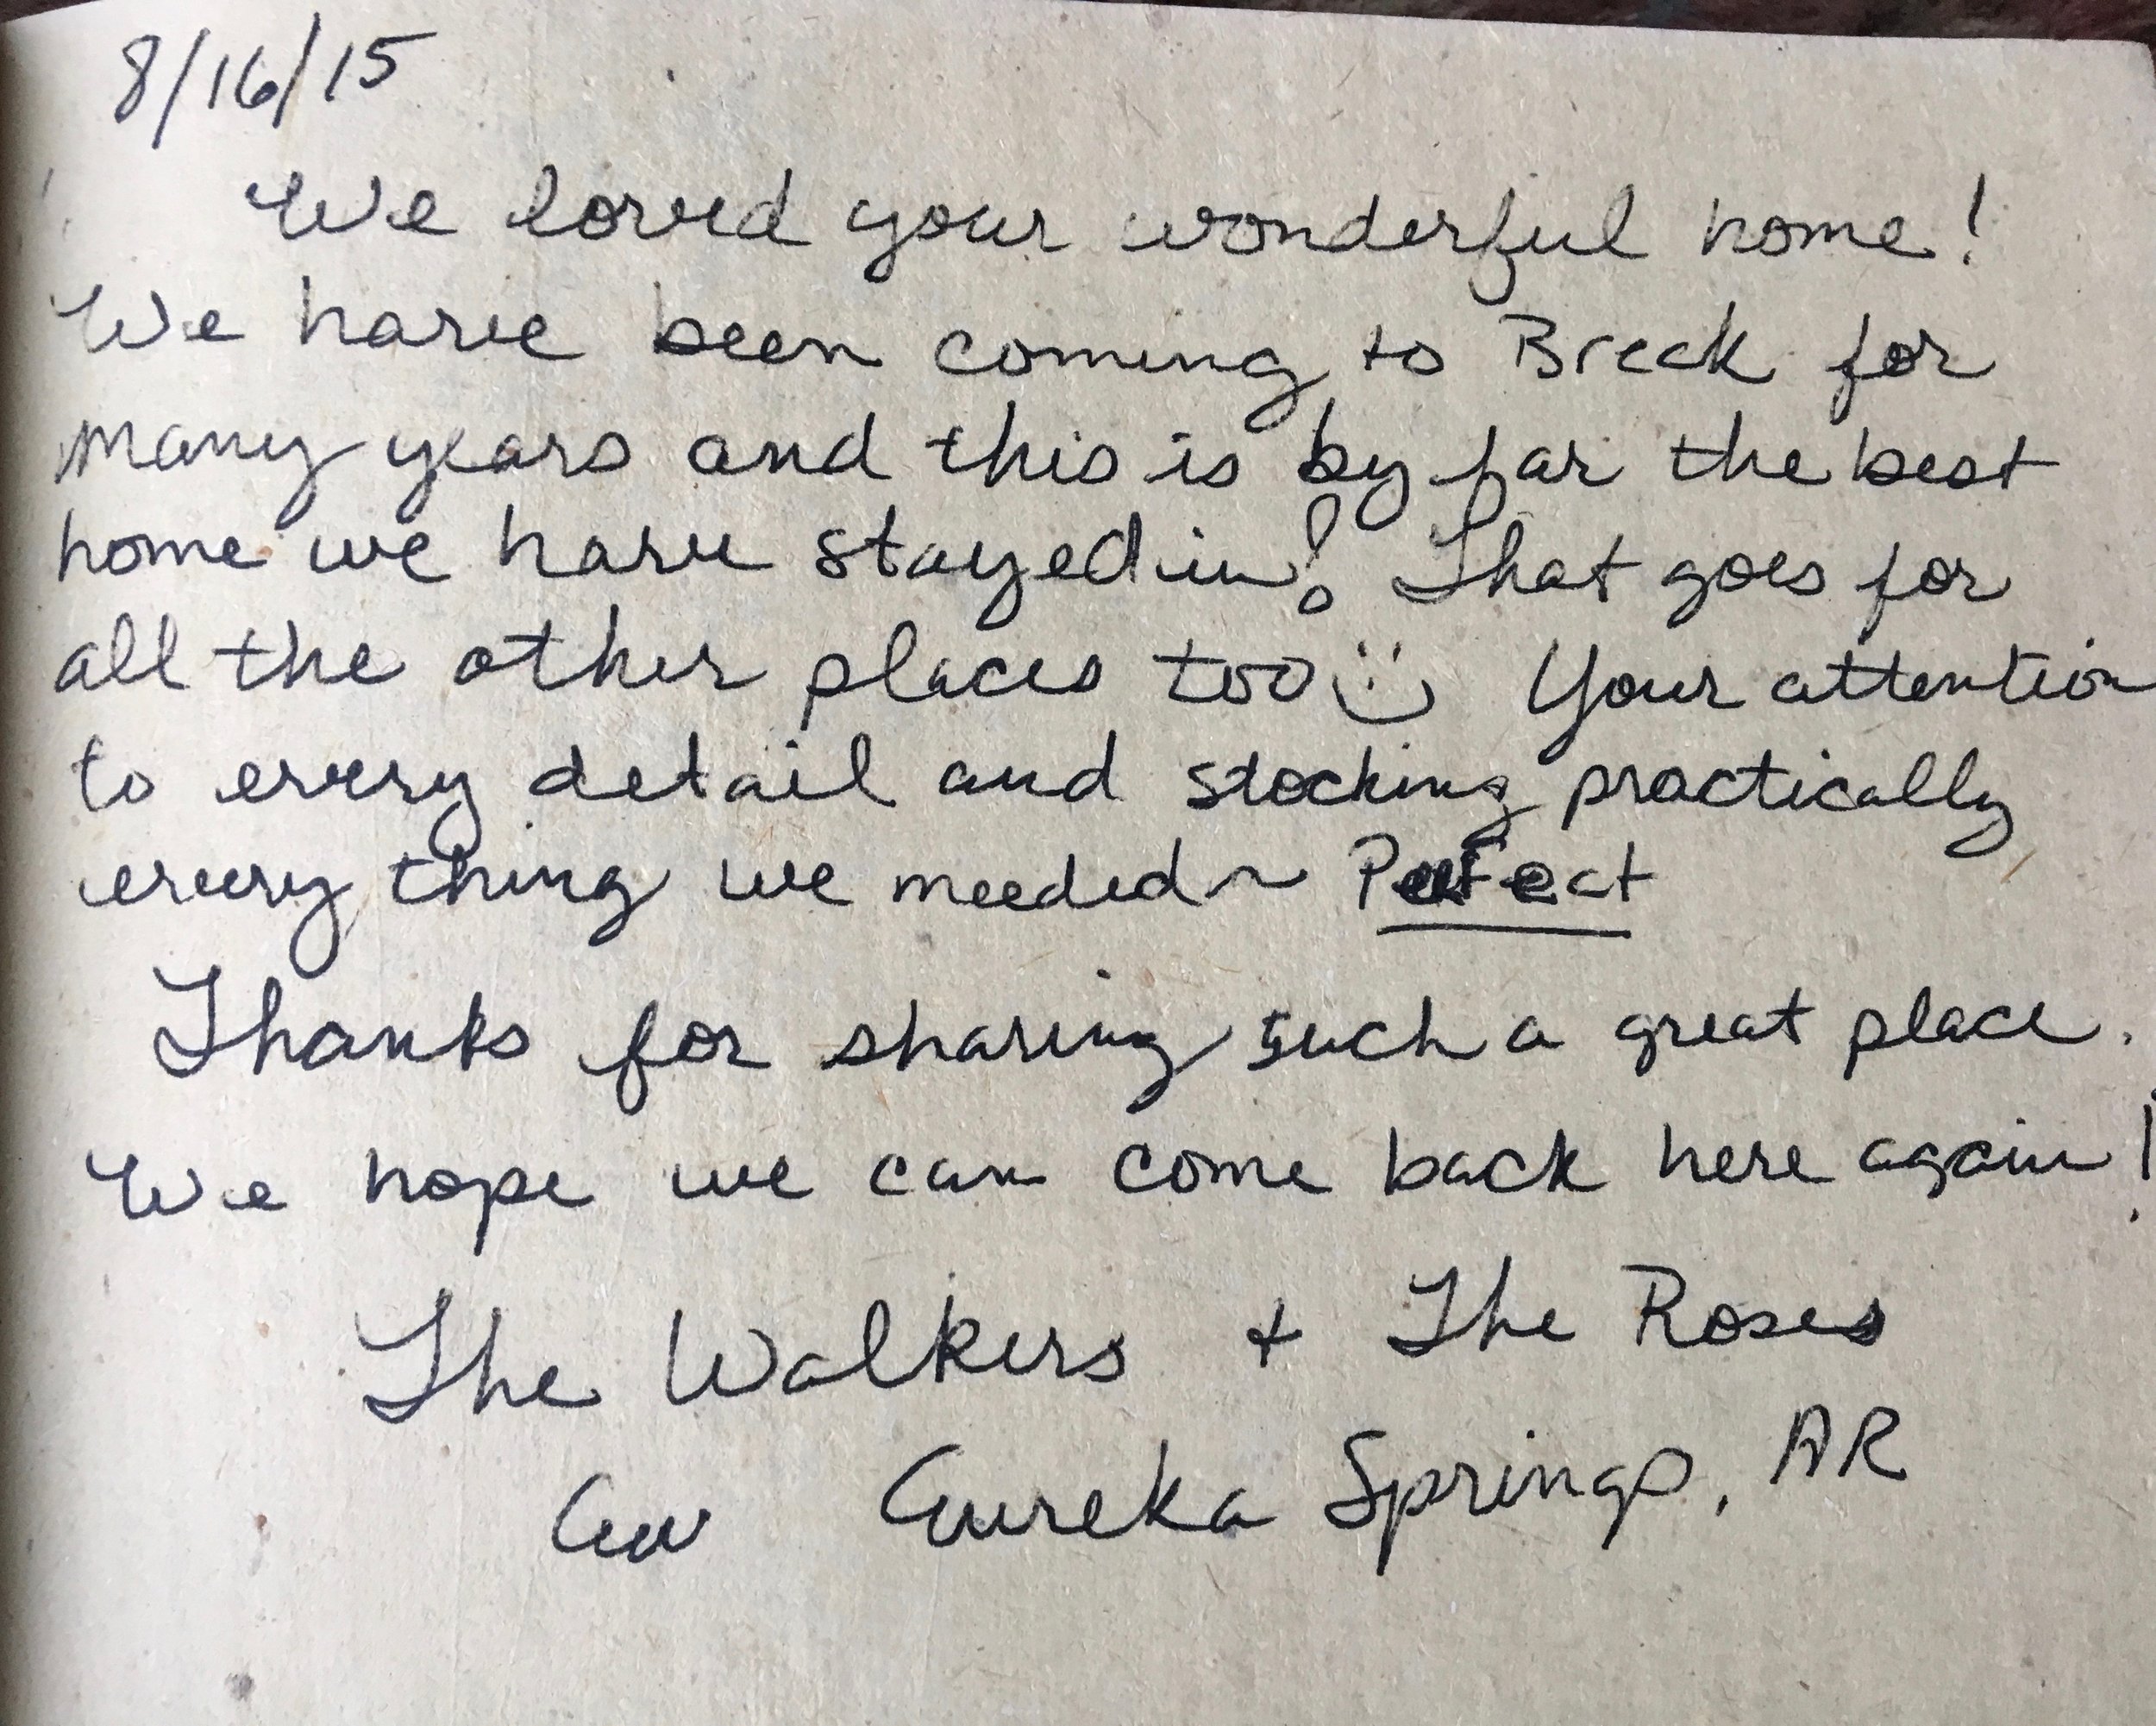 8/16/15
We loved your wonderful home!
We have been coming to Breck for
many years and this is by far the best
home we have stayed in! That goes for
all the other places too :) Your attention
to every detail and stocking practically
every thing we needed ~ Perfect
Thanks for sharing such a great place.
We hope we can come back here again!
The Walkers + The Roses
Eureka Springs, AR